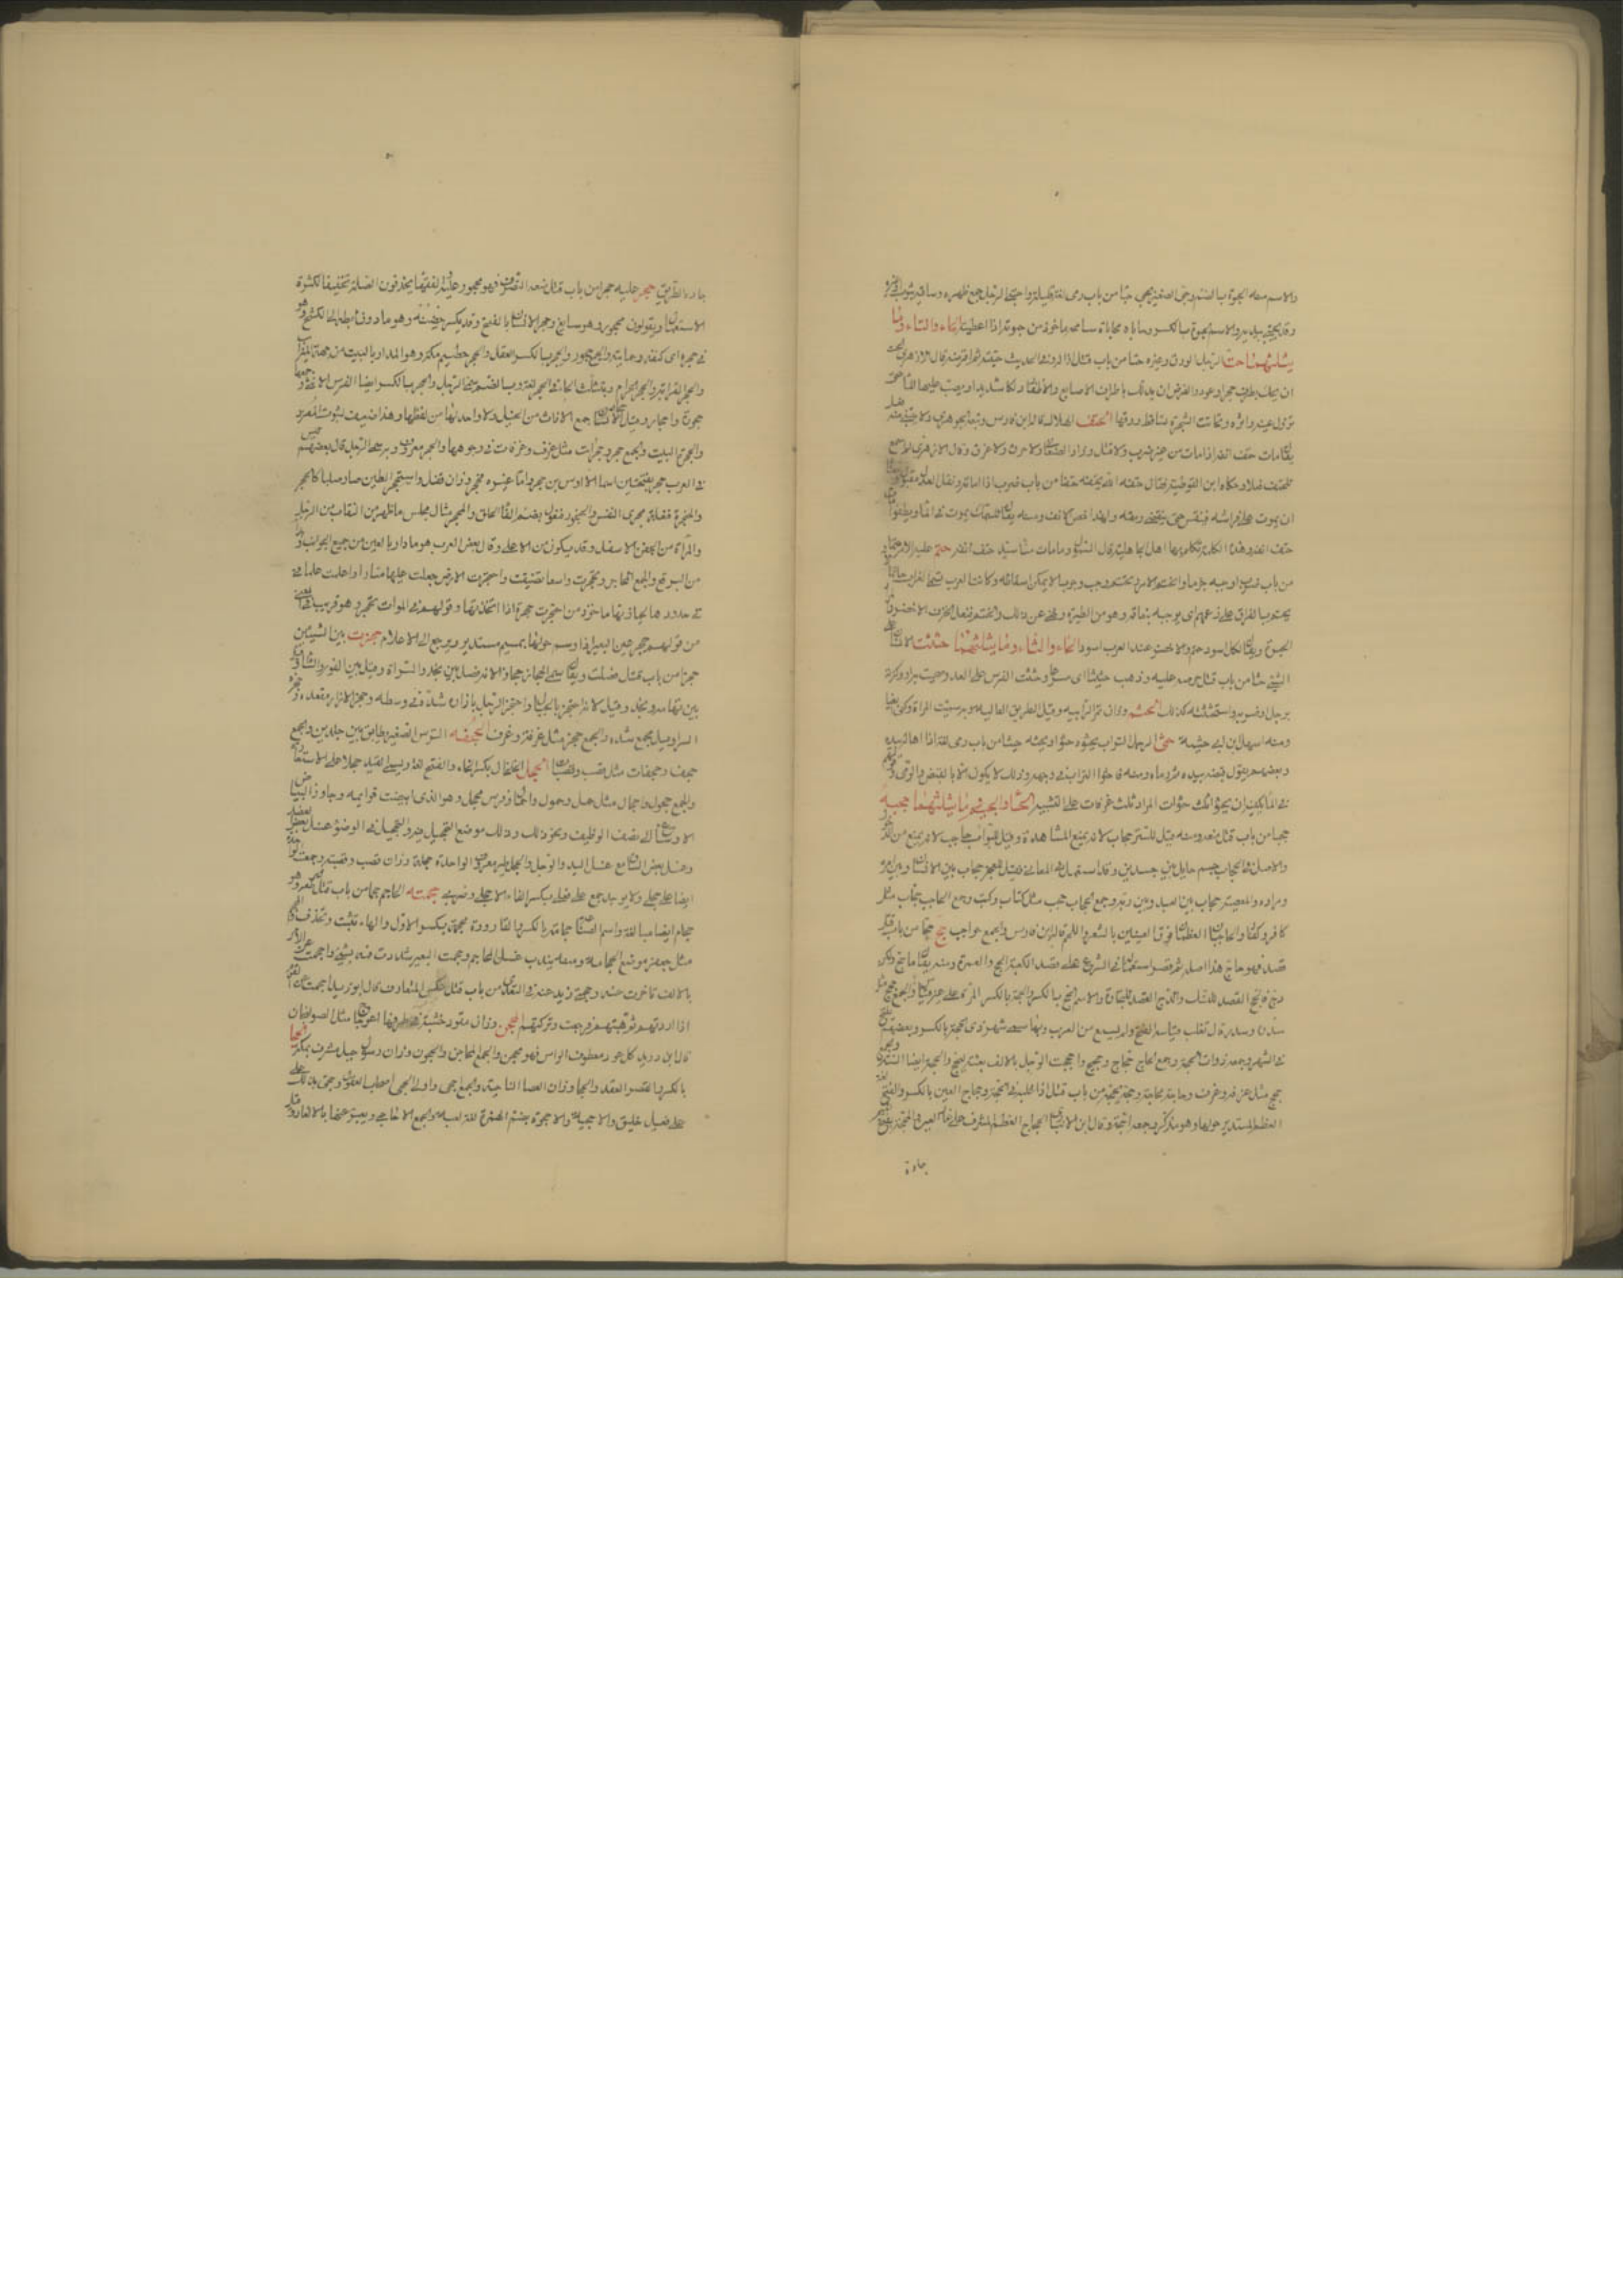 والاسم منه الحبوة بالضم وحبى الصغير يحبى حبيا من باب رمى لغة قليلة واحتبى الرجل جمع ظهره وساقيه بثوب
وقد يحتبى بيديه والاسم الحبوة بالكسر وحاباه محاباة سامحه ماخوذ من حبوته اذا اعطيته الحاء والتاء وما
يثلثهما حت الرجل الورق وغيره حتا من باب قتل ازاله وفى الحديث حتيه ثم اقرصيه قال الازهرى الحت
ان يحك بطرف حجر او عود والقرص ان يدلك باطراف الاصابع والاظفار دلكا شديدا ويصب عليها الماء حتى
تزول عينه واثره وتحاتت الشجرة تساقط ورقها الحتف الهلاك قال ابن فارس وتبعه الجوهرى ولا يبنى منه فعل
يقال مات حتف انفه اذا مات من غير ضرب ولا قتل وزاد الصغانى ولا حرق ولا غرق وقال الازهرى لم اسمع
للحتف فعلا وحكاه ابن القوطية فقال حتفه الله يحتفه حتفا من باب ضرب اذا اماته ونقل العدل مقبول
ان يموت على فراشه فيتنفس حتى ينقضى رمقه ولهذا خص الانف ومنه يقال للسمك يموت فى الماء ويطفو
حتف انفه وهذه الكلمة تكلم بها اهل الجاهلية قال السموال وما مات منا سيد حتف انفه حتم عليه الامر حتما
من باب ضرب اوجبه جزما وانحتم الامر وتحتم وجب وجوبا لا يمكن اسقاطه وكانت العرب تسمى الغراب حاتما
يحتم بالفراق على زعمهم اى يوجبه بنعاقه وهو من الطيرة ونهى عن ذلك والحنتم فنعل الخزف الاخضر
الجرة ويقال لكل اسود حنتم والاخضر عند العرب اسود الحاء والثاء وما يثلثهما حثثت الانسان على
الشئ حثا من باب قتل حرضته عليه وذهب حثيثا اى مسرعا وحثثت الفرس على العدو صحت به او وكزته
برجل او ضرب واستحثثته كذلك الحثمة وزان تمرة الرابية وقيل الطريق العالية وبه سميت المراة وكنى بها
ومنه سهل بن ابى حثمة حثا الرجل التراب يحثوه حثوا ويحثيه حثيا من باب رمى لغة اذا اهاله بيده
وبعضهم يقول قبضه بيده ثم رماه ومنه فاحثوا التراب فى وجهه ولا يكون الا بالقبض والرمى وقولهم
فى الماء يكفيه ان يحثو ثلاث حثوات المراد ثلث غرفات على التشبيه الحاء والجيم وما يثلثهما حجبه
حجبا من باب قتل منعه ومنه قيل للستر حجاب لانه يمنع المشاهدة وقيل للبواب حاجب لانه يمنع من الدخول
والاصل فى الحجاب جسم حايل بين جسدين وقد استعمل فى المعانى فقيل العجز حجاب بين الانسان وبين
ومراده والمعصية حجاب بين العبد وبين ربه وجمع الحجاب حجب مثل كتاب وكتب وجمع الحاجب حجاب مثل
كافر وكفار والحاجبان العظمان فوق العينين بالشعر واللحم قاله ابن فارس والجمع حواجب حج حجا من باب قتل
قصد فهو حاج هذا اصله ثم قصر استعماله فى الشرع على قصد الكعبة للحج والعمرة ومنه يقال ما حج ولكن
دج فالحج القصد للنسك والدج القصد للتجارة والاسم الحج بالكسر والحجة بالكسر المرة على غير قياس والجمع حجج مثل
سدرة وسدر قال ثعلب قياسه الفتح ولم يسمع من العرب وبها سمى شهر ذى الحجة بالكسر وبعضهم يفتح
فى الشهر وجمعه ذوات الحجة وجمع الحاج حجاج وحجيج واحججت الرجل بالالف بعثته ليحج والحجة ايضا السنة
حجج مثل غرفة وغرف وحاجه محاجة وحجه يحجه من باب قتل اذا غلبه فى الحجة وحجاج العين بالكسر والفتح لغة
العظم المستدير حولها وهو مذكر وجمعه احجة وقال ابن الانبارى الحجاج العظم المشرف على غار العين والمحجة بفتح الميم
جادة
جادة الطريق حجر عليه حجرا من باب قتل منعه التصرف فهو محجور عليه والفقهاء يحذفون الصلة تخفيفا لكثرة
الاستعمال ويقولون محجور وهو سايغ وحجر الانسان بالفتح وقد يكسر حضنه وهو ما دون ابطه الى الكشح وهو
فى حجره اى كنفه وحمايته والجمع حجور والحجر بالكسر العقل والحجر حطيم مكة وهو المدار بالبيت من جهة الميزاب
والحجر القرابة والحجر الحرام وتثليث الحاء لغة وبالضم سمى الرجل والحجر بالكسر ايضا الفرس الانثى وجمعها
حجور واحجار وقيل الاحجار جمع الاناث من الخيل ولا واحد لها من لفظها وهذا ضعيف لثبوت المفرد
والحجرة البيت والجمع حجر وحجرات مثل غرف وغرفات فى وجوهها والحجر معروف وبه سمى الرجل قال بعضهم ليس
فى العرب حجر بفتحتين اسما الا اوس بن حجر واما غيره فحجر وزان قفل واستحجر الطين صار صلبا كالحجر
والحنجرة فنعلة مجرى النفس والحنجور فنعول بضم الفاء الحلق والمحجر مثال مجلس ما ظهر من النقاب من الرجل
والمراة من الجفن الاسفل وقد يكون من الاعلى وقال بعض العرب هو ما دار بالعين من جميع الجوانب
من البرقع والجمع المحاجر وتحجرت واسعا ضيقت واحتجرت الارض جعلت عليها منارا واعلمت علما فى
فى حدودها لحيازتها ماخوذ من احتجرت حجرة اذا اتخذتها وقولهم فى الموات تحجر وهو قريب المعنى
من قولهم حجر عين البعير اذا وسم حولها بميسم مستدير ويرجع الى الاعلام حجزت بين الشيئين
حجزا من باب قتل فصلت ويقال سمى الحجاز حجازا لانه فصل بين نجد والسراة وقيل بين الغور والشام وقيل
بين تهامة ونجد وقيل لانه احتجز بالجبال واحتجز الرجل بازاره شده فى وسطه وحجزة الازار مقعده وحجزة
السراويل مجمع شده والجمع حجز مثل غرفة وغرف الحجفة الترس الصغير يطارق بين جلدين والجمع
حجف وحجفات مثل قصب وقصبات الحجل الخلخال بكسر الحاء والفتح لغة ويسمى القيد حجلا على الاستعارة
والجمع حجول واحجال مثل حمل وحمول واحمال وفرس محجل وهو الذى ابيضت قوايمه وجاوز البياض
الارساغ الى نصف الوظيف ونحو ذلك وذلك موضع التحجيل فيه والتحجيل فى الوضوء غسل بعض العضد
وغسل بعض الساق مع غسل اليد والرجل والحجل طير معروف الواحدة حجلة وزان قصب وقصبة وجمعت الواحدة
ايضا على حجلى ولا يوجد جمع على فعلى بكسر الفاء الا حجلى وظربى حجمه الحاجم حجما من باب قتل شرطه وهو
حجام ايضا مبالغة واسم الصناعة حجامة بالكسر والقارورة محجمة بكسر الاول والهاء تثبت وتحذف
مثل جعفر موضع الحجامة ومنه يندب غسل المحاجم وحجمت البعير شددت فمه بشئ واحجمت عن الامر
بالالف تاخرت عنه وحجمنى زيد عنه فى التعدى من باب قتل عكس المتعارف قال ابو زيد احجمت عن القوم
اذا اردتهم ثم هبتهم فرجعت وتركتهم المحجن وزان مقود خشبة فى طرفها اعوجاج مثل الصولجان
قال ابن دريد كل عود معطوف الراس فهو محجن والجمع المحاجن والحجون وزان رسول جبل مشرف بمكة الحجا
بالكسر والقصر العقل والحجا وزان العصا الناحية والجمع احجاء
على فعيل خليق والاحجية والاحجوة بضم الهمزة لغة